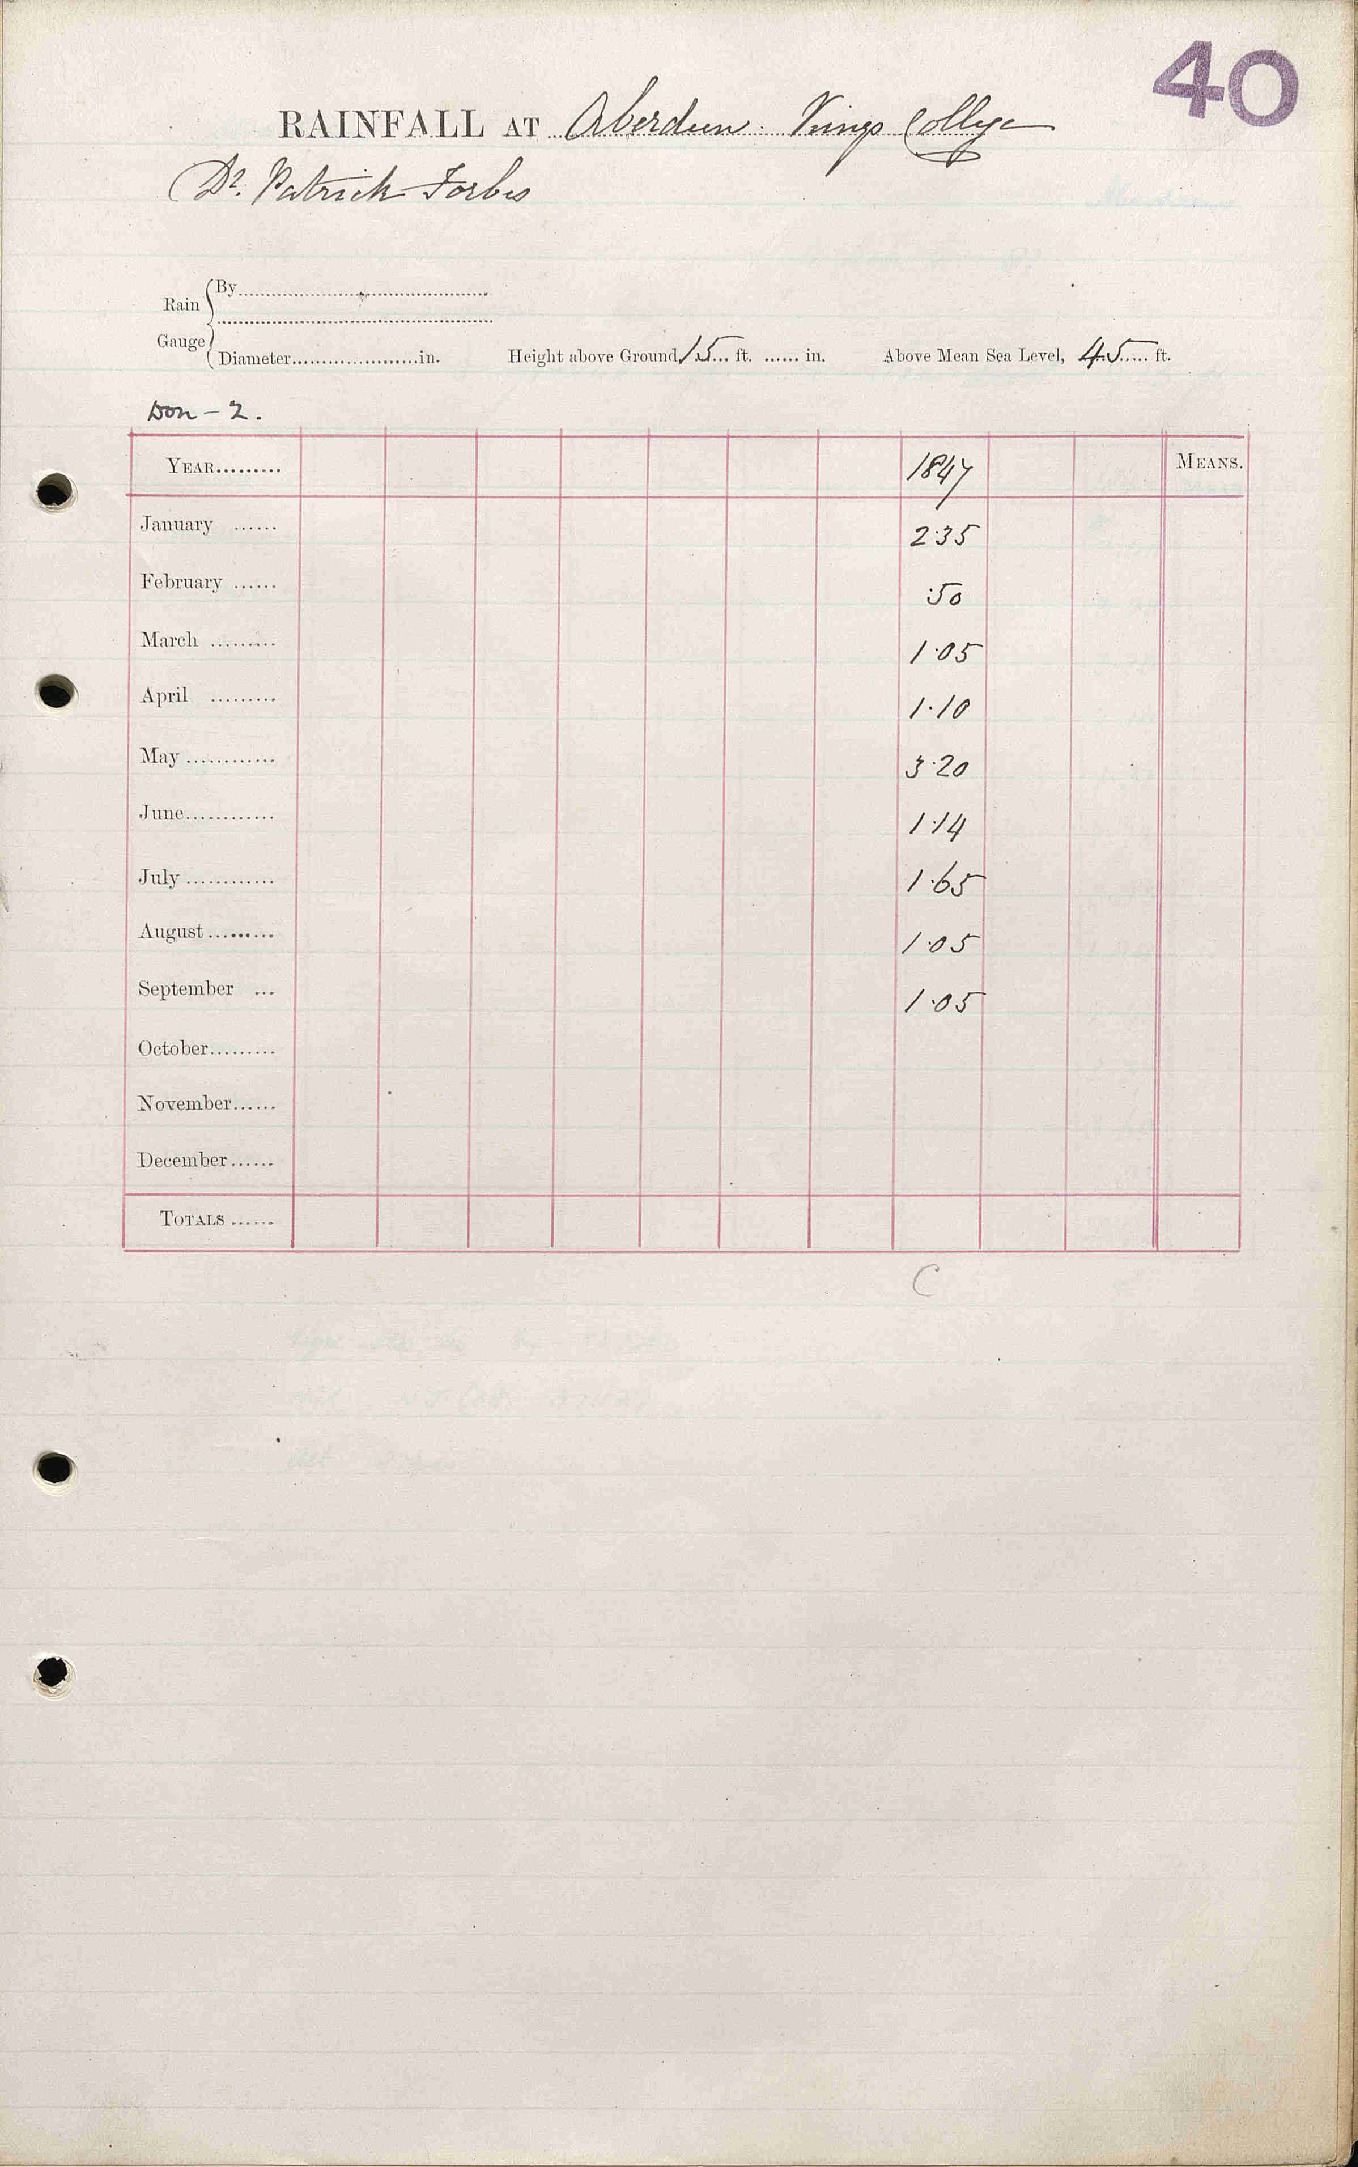 40
RAINFALL AT Aberdeen. Kings College
Dr. Patrick Forbes
Rain Gauge { By
Diameter in. Height above Ground 15 ft. in. Above Mean Sea Level, 45 ft.
Don - 2.
YEAR 1847 MEANS.
January 2.35
February .50
March 1.05
April 1.10
May 3.20
June 1.14
July 1.65
August 1.05
September 1.05
October
November
December
TOTALS
C